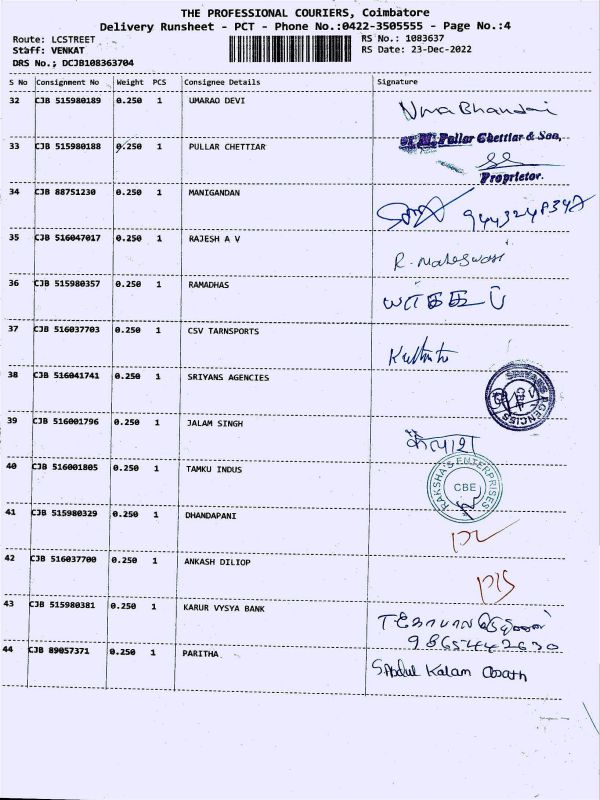 THE PROFESSIONAL COURIERS, Coimbatore
Delivery Runsheet - PCT - Phone No.:0422-3505555 - Page No.:4
Route: LCSTREET
RS No.: 1083637
Staff: VENKAT
RS Date: 23-Dec-2022
DRS No.; DCJB108363704
S No Consignment No Weight PCS Consignee Details Signature
32 CJB 515980189 0.250 1 UMARAO DEVI
33 CJB 515980188 0.250 1 PULLAR CHETTIAR
Pullar Chettiar & Son,
Proprietor.
34 CJB 88751230 0.250 1 MANIGANDAN
35 CJB 516047017 0.250 1 RAJESH A V
R. Maheswari
36 CJB 515980357 0.250 1 RAMADHAS
37 CJB 516037703 0.250 1 CSV TARNSPORTS
38 CJB 516041741 0.250 1 SRIYANS AGENCIES
SRIYANS AGENCIES
39 CJB 516001796 0.250 1 JALAM SINGH
कैलाश
40 CJB 516001805 0.250 1 TAMKU INDUS
RAKSHA'S ENTERPRISES
CBE
41 CJB 515980329 0.250 1 DHANDAPANI
42 CJB 516037700 0.250 1 ANKASH DILIOP
43 CJB 515980381 0.250 1 KARUR VYSYA BANK
9865442630
44 CJB 89057371 0.250 1 PARITHA
S Abdul Kalam